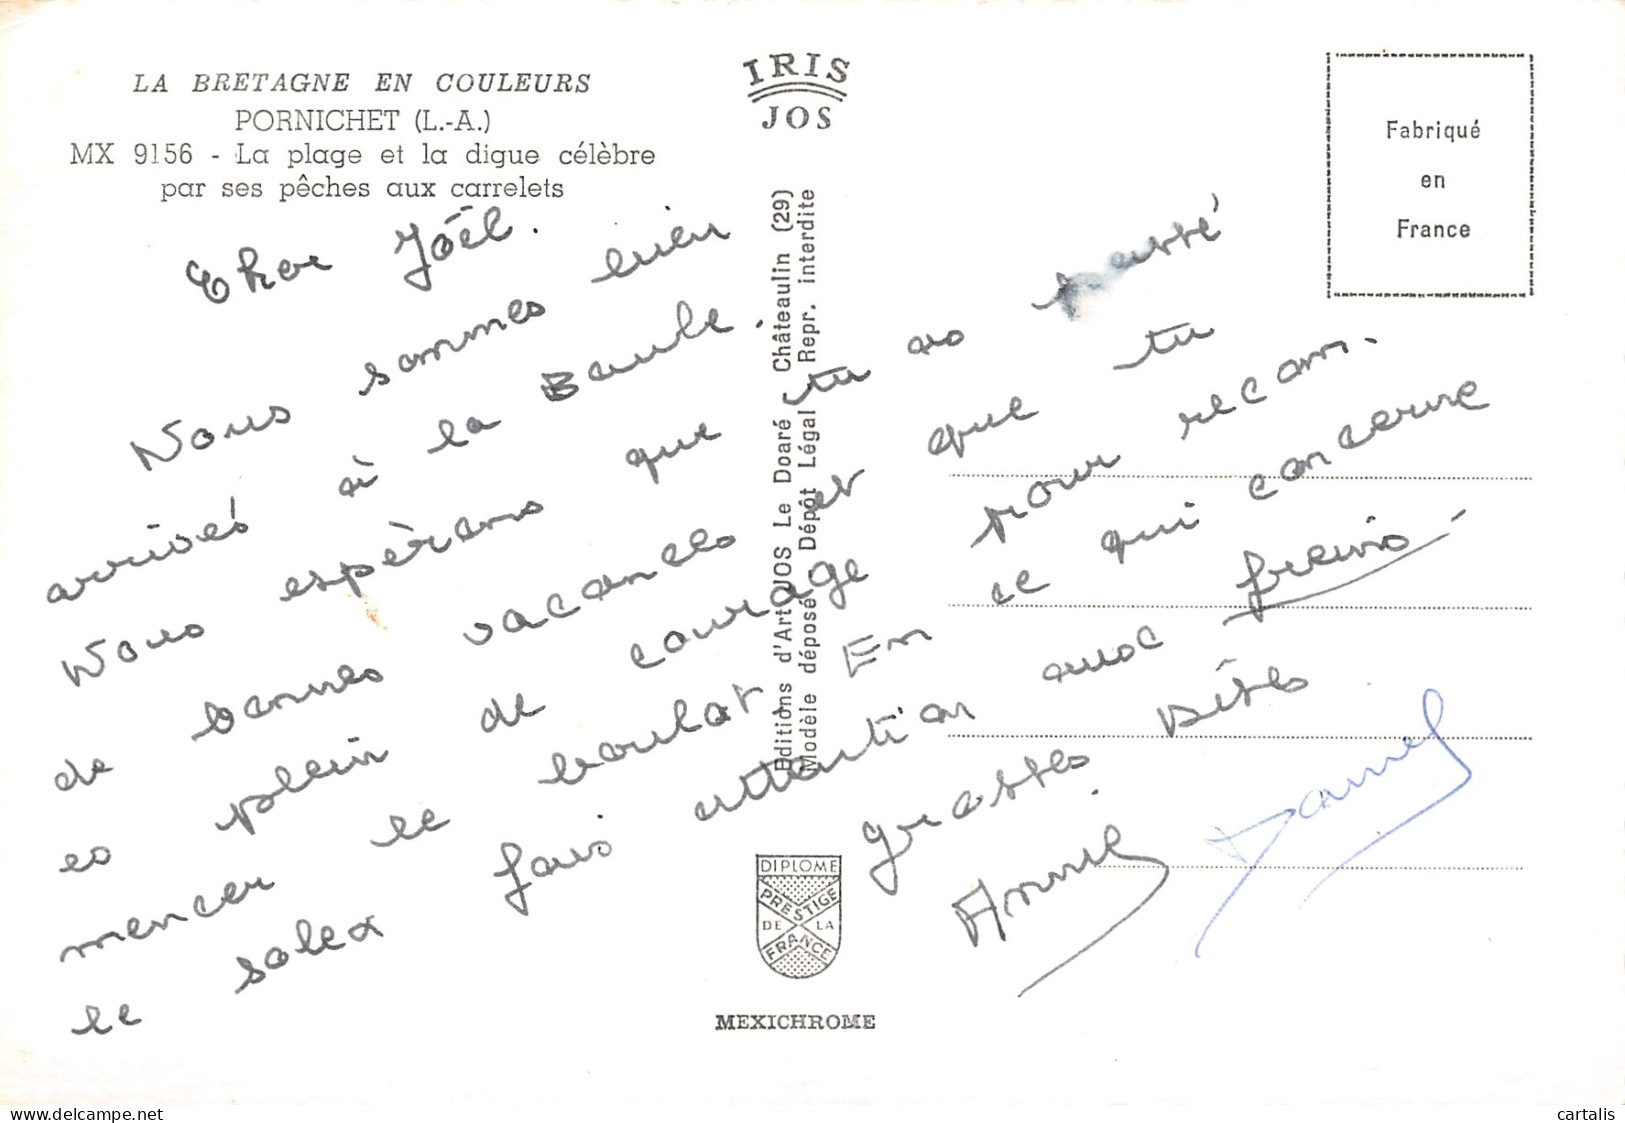 LA BRETAGNE EN COULEURS
PORNICHET (L.-A.)
MX 9156 - La plage et la digue célèbre
par ses pêches aux carrelets
IRIS
JOS
Fabriqué
en
France
Editions d'Art JOS Le Doaré Châteaulin (29)
Modèle déposé Dépôt Légal Repr. interdite
Cher Joël.
Nous sommes bien
arrivés à la Baule.
Nous espèrons que tu as passé
de bonnes vacances et que tu
es plein de courage pour recom.
mencer le boulot En ce qui concerne
le solex fais attention aux freins
grosses bises
Annie
Daniel
DIPLOME
PRESTIGE
DE LA
FRANCE
MEXICHROME
delcampe.net
cartalis